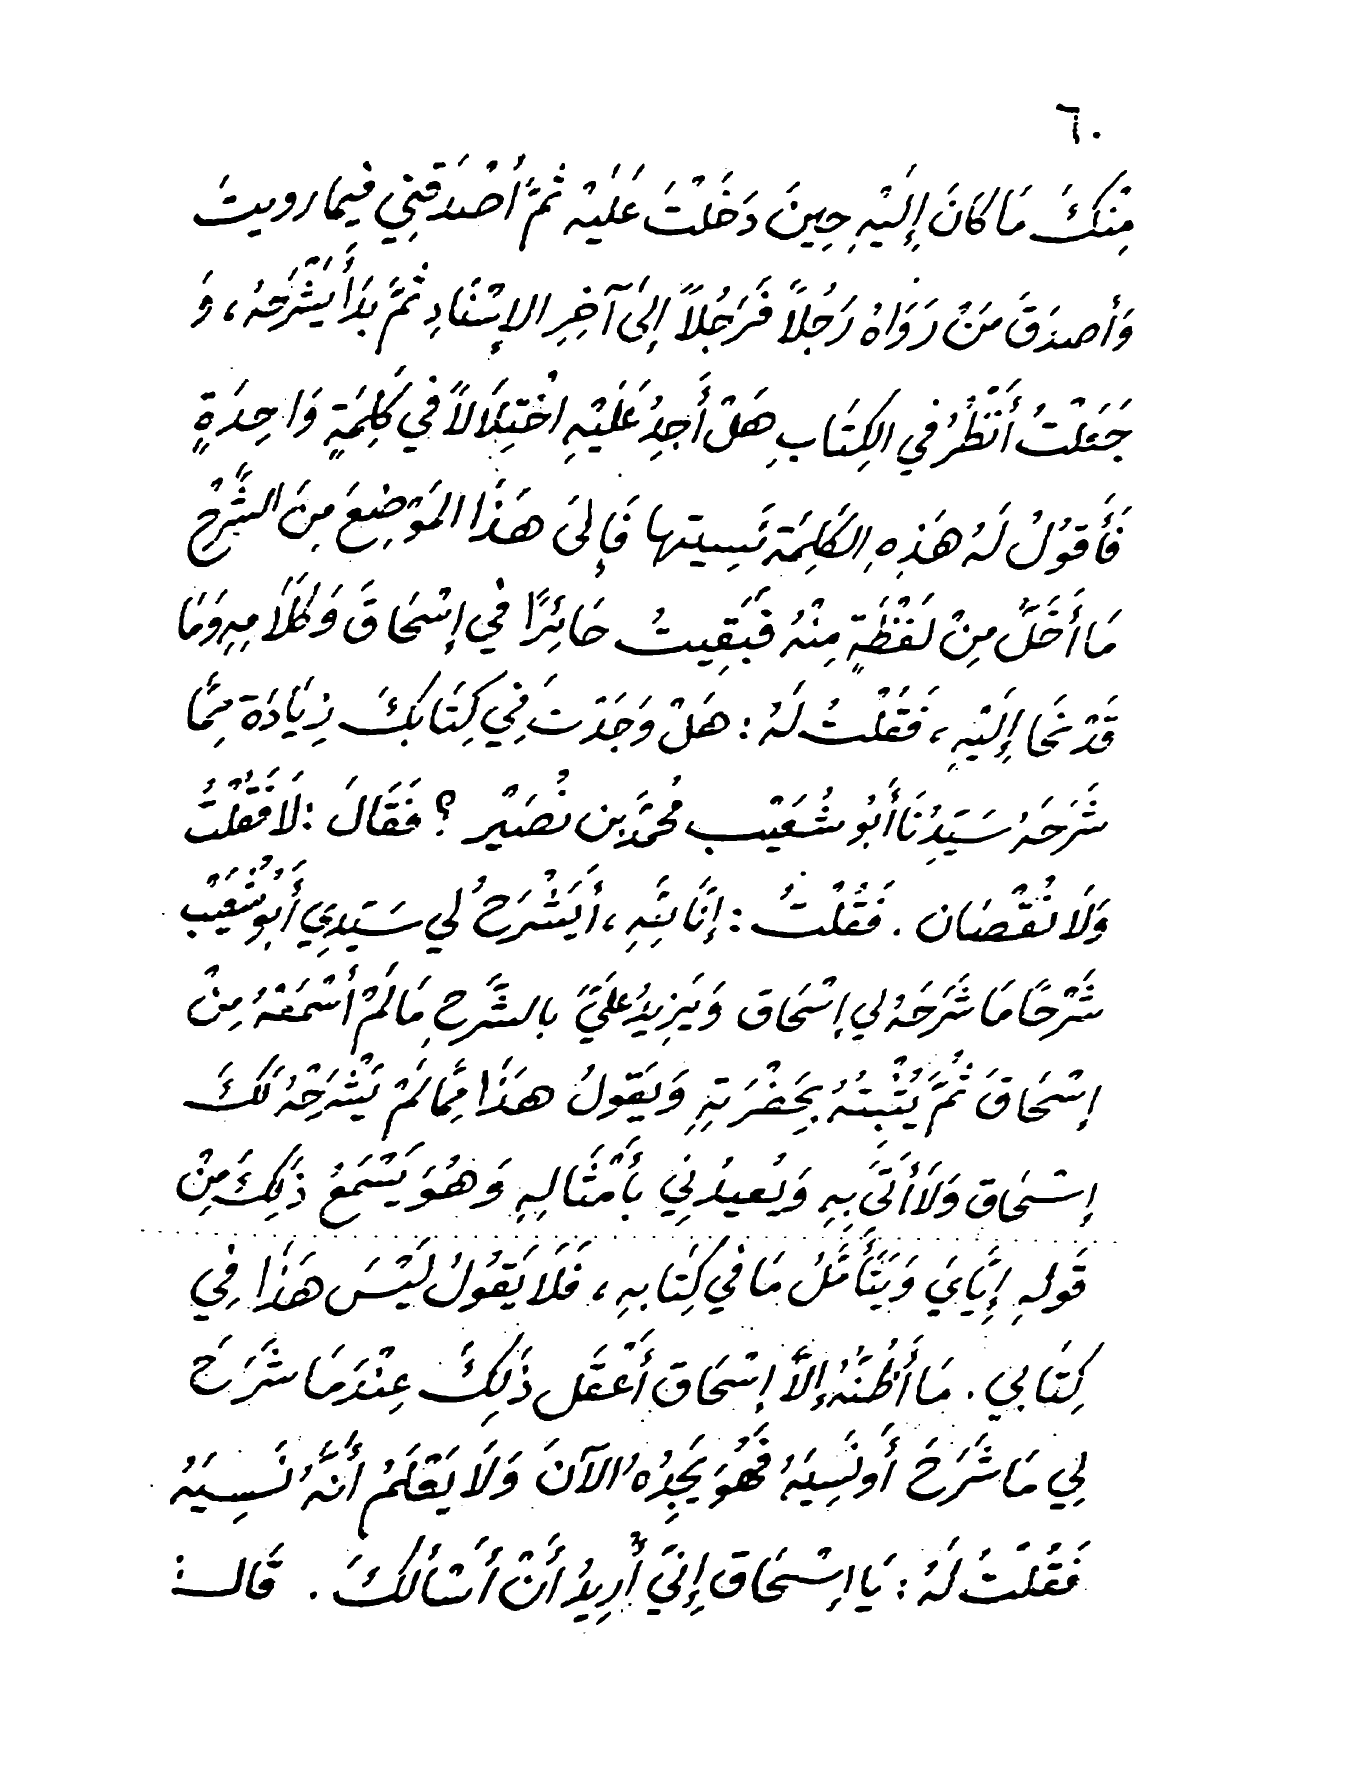 ٦٠
مِنْكَ مَا كَانَ إِلَيْهِ حِينَ دَخَلْتَ عَلَيْهِ ثُمَّ أَصْدَقَنِي فِيمَا رويتَ
وَأصدَقَ مَنْ رَوَاهُ رَجُلاً فَرَجُلاً إِلَى آخِرِ الإِسْنَادِ ثُمَّ بَدَأَ يَشْرَحُهُ ، وَ
جَعَلْتُ أَنْظُرُ في الكِتَابِ هَلْ أَجِدُ عَلَيْهِ اخْتِلَالاً في كَلِمَةٍ وَاحِدَةٍ
فَأَقُولُ لَهُ هَذِهِ الكَلِمَة نَسِيتها فَإِلَى هَذَا المَوْضِعَ مِنَ الشَّرْحِ
مَا أَخَلَّ مِنْ لَفْظَةٍ مِنْهُ فَبَقِيتُ حَائِرًا في إِسْحَاقَ وَكَلَامِهِ وَمَا
قَدْ نَحَا إِلَيْهِ ، فَقُلْتُ لَهُ : هَلْ وَجَدْتَ فِي كِتَابِكَ زِيَادَة مِمَّا
شَرَحَهُ سَيِّدُنَا أَبُو شُعَيْب مُحمَّد بن نُصَيْر ؟ فَقَالَ : لَا فَقُلْتُ
وَلَا نُقْصَان . فَقُلْتُ : إِنَّا لِلَّهِ ، أَيَشْرَحُ لي سَيِّدِي أَبُو شُعَيْب
شَرْحًا مَا شَرَحَهُ لي إِسْحَاق وَيَزِيدُ عَلَيَّ بالشَّرحِ مَا لَمْ أَسْمَعْهُ مِنْ
إِسْحَاقَ ثُمَّ يُثْبِتُهُ بِحَضْرَتِهِ وَيَقُولُ هَذَا مِمَّا لَمْ يَشْرَحْهُ لَكَ
إِسْحَاق وَلَا أَتَى بِهِ وَيُعِيدُنِي بِأَمْثَالِهِ وَهُوَ يَسْمَعُ ذَلِكَ مِنْ
قَولِهِ إِيَّايَ وَيَتَأَمَّلُ مَا في كِتَابِهِ ، فَلَا يَقُولُ لَيْسَ هَذَا فِي
كِتَابي . مَا أَظُنُّهُ إِلاَّ إِسْحَاق أَعْقَل ذَلِكَ عِنْدَمَا شَرَحَ
لِي مَا شَرَحَ أَو نَسِيَهُ فَهُوَ يَجِدُهُ الآنَ وَلَا يَعْلَمُ أَنَّهُ نَسِيَهُ
فَقُلْتُ لَهُ : يَا إِسْحَاق إِنِّي أُرِيدُ أَنْ أَسْأَلكَ . قَال :